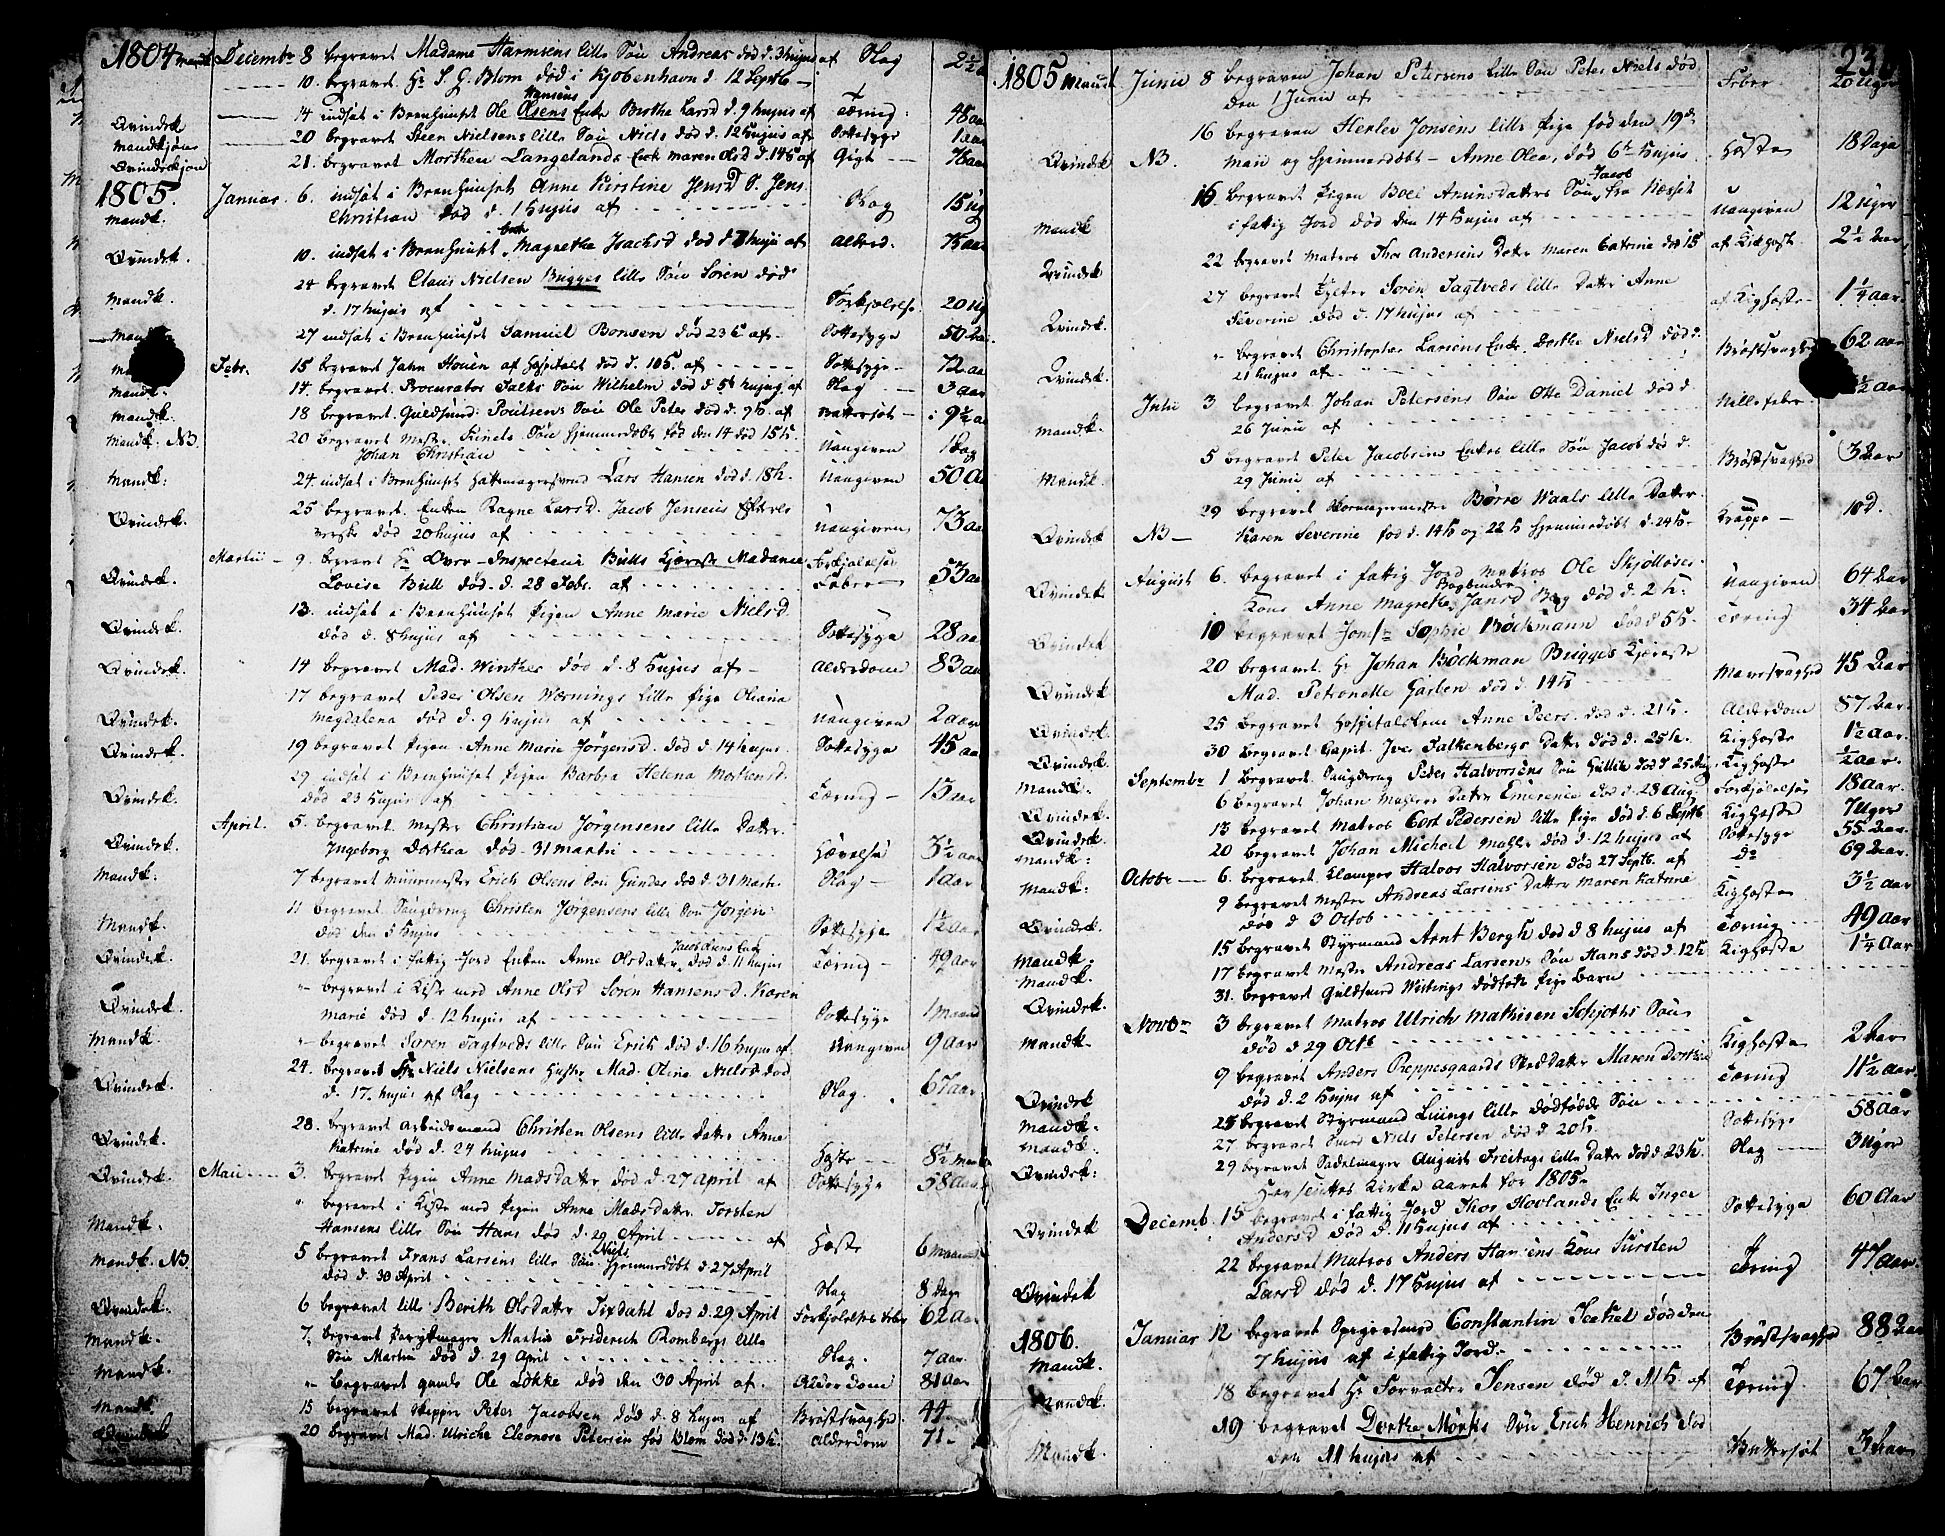 1804 Decembr 8 begravet Madame Harmsens lille Søn Andreas død d. 3 hujus af Slag 2½
10. begravet Hr S. G. Blom død i Kjøbenhavn d. 12 Septb
Hansens
Qvindek. 14 indsat i Beenhuuset Ole Olsens Enke Birthe Larsd d. 9 hujus af Tæring 48 aar
Mandkjøn 20 begravet Steen Nielsens lille Søn Niels død d. 12 hujus af Sottesyge 1 aar
Qvindekjøn 21. begravet Morthen Langelands Enk Maren Olsd d. 14 h af Gigt 76 aar
1805. Januar 6. indsat i Beenhuuset Anne Kirstine Jensd S. Jens
Mandk. Christian død d. 1 hujus af Slag 15 Ug
Qvindek. 10. indsat i Beenhuuset Magrethe Isachsd død d. 7 hujus af Alderd. 75 aar
24 begravet Claus Nielsen Brygges lille Søn Søren død
Mandk. d. 17 hujus af Forkjølelse. 20 Ug
Mandk 27 indsat i Beenhuuset Samuel Bonsen død 23 h. af Sottesyge 50 Aar
Febr. 15 begravet Jahn Houen af Hospitalet død d. 10 h. af Sottesyge 72 aar
Mandk. 14 begravet Procurator Falks Søn Wilhelm død d. 5 h hujus af Slag 3 aar
Mandk. 18 begravet Guldsmed Poulsens Søn Ole Peter død d. 9 h. af Vattersot 9½ aar
Mandk. NB. 20 begravet Mester Søn Hjemmedøbt fød den 14 død 15 h.
Johan Christian Uangiven 1 Dag
Mandk: 24. indsat i Beenhuuset Hattemagersvend Lars Hansen død d. 18 h. Uangiven 50 A
25 begravet Enken Ragne Larsd. Jacob Jensens Efterle
Qvindek. verske død 20 hujus af Uangiven 73 aar
Martii 9. begravet Hr Over-Inspecteur Bulls Kjæreste Madame Forkjølelses
Qvindek. Lovise Bull død. d. 28 Febr. af Feber 53 aar
13. indsat i Beenhuuset Pigen Anne Marie Nielsd.
Qvindek. død d. 8 hujus af Sottesyge 28 aar
Qvindek. 14 begravet Mad. Winther død d. 8 hujus af Alderdom 83 aar
17 begravet Peder Olsen Wernings lille Pige Oliana
Qvindek. Magdalena død d. 9 hujus af Uangiven 2 aar
Qvindek. 19 begravet Pigen Anne Marie Jørgensd. død d. 14 hujus. Sottesyge 45 aar
29 indsat i Beenhuuset Pigen Barbra Helena Mortensd.
Qvindek. død 23 hujus af Tæring 15 aar
April. 5. begravet Mester Christian Jørgensens lille Datter
Qvindek. Ingeborg Dorthea død 31 Martii Hævelse 3½ aar
Mandk. 7 begravet Muurmester Erich Olsens Søn Gunder død d. 31 Marti. Slag 1 aar
11 begravet Saugdreng Christen Jørgensens lille Søn Jørgen
Mandk. død den 5 hujus Sottesyge 1½ aar
Jacob Olsens Enke
Qvindek. 21. begravet i fattig Jord Enken Anne Olsdatter død d. 11 hujus Tæring 49 aar
" begravet i Kiste med Anne Olsd Søren Hansens D. Karen
Qvindek. Marie død d. 12 hujus af Sottesyge 1 maaned
Mandk. " begravet Søren Tagtveds lille Søn Erich død d. 16 hujus af Uangiven 9 Aar
24. begravet Niels Nielsens Huster Mad. Oline Nielsd død
Qvindek. d. 17. hujus af Slag Slag. 67 aar
28. begravet Arbeidsmand Christen Olsens lille Datter Anne
Qvindek. Katrine død d. 24 hujus Høste 8½ maan
Qvindek. Maii 3. begravet Pigen Anne Madsdatter død d. 27 April af Sottesyge 58 Aar
" begravet i Kiste med Pigen Anne Madsdatter Torsten
Mandk. Hansens lille Søn Hans død d. 29 April af Høste 6 maaneder
Mandk. NB. 5 begravet Frans Larsens lille Søn Niels Hjemmedøbt d. 27 April
død d. 30 April Slag 8 Dage
Qvindek. 6 begravet lille Berith Olsdatter død d. 29 April Forkjølelses Feber 62 Aar
Mandk. 7. begravet Martin Friderich Rombergs lille
Mandk. Søn Martin død d. 29 April Slag. 7 aar
Mandk. " begravet gamle Ole Løkke død den 30 April af. Alderdom 81 aar
Mandk 15 begravet Skipper Peter Jacobsen død d. 8 hujus af Brøstsvaghed. 44
Qvindek 20 begravet Mad. Ulriche Eleonore Petersen fød Blom død d. 13 h. Alderdom 71
1805 Junii 8 begraven Johan Petersens lille Søn Peter Niels død
den 1 Junii af Feber 20 Uger
16 begraven Herlev Jonsens lille Pige fød den 19 de
Qvindek NB. Mai og hjemmedøbt Anne Olea, død 6te hujus Høste 18 Dage
16 begravet Pigen Boel Amundsdatters Søn Jacob fra Næsset
Mandk i fattig Jord død den 14 hujus af Uangiven 12 Uger
Qvindek 22 begravet Matros Thor Andersens Datter Maren Catrine død 15 af Kikhost 2½ Aar
27 begravet Søren Tagtveds lille Datter Anne
Qvindek. Severine død d. 17 hujus af af Kighoste 1¼ aar
" begravet Christopher Larsens Enke Dorthe Nielsd død d.
Qvindek. 21 hujus af Brøstsvaghed 62 aar
Julii 3 begravet Johan Petersens Søn Otte Daniel død d
Mandk. 26 Junii af ½ aar
5 begravet Peter Jacobsens Enkes lille Søn Jacob død d.
Mandk. 29 Junii af Brøstsvaghed 3 Aar
29 begravet Børre Waals lille Datter
Qvindek NB Karen Severine fød d. 14 h og 22 h hjemmedøbt d. 24 h. Kroppe 10 D.
Qvindek August 6. begravet i fattig Jord Matros Ole Skjølloses Uangiven 64 Aar
Kone Anne Magrethe Jansd død d. 2 h. 34 Aar
Qvindek 10 begravet Jomfr Sophie Bøckmann død d 5 h. Tæring
20 begravet Hr Johan Bøckman Brygges Kjæreste
Qvindek Mad. Petronelle Garben død d. 14 h Mavesvaghed 45 Aar
Qvindek. 25 begravet Hospitalslem Anne Peers. død d. 21 h. Alderdom 87 Aar.
Qvindek. 30 begravet Capit. Iver Falkenbergs Datter død d. 25 h. Kighoste 1½ Aar.
Mandk. Septembr 1 begravet Saugdreng Peder Halvorsens Søn Gullik død d 25 Aug. Kighoste ½ aar.
Qvindek. 6 begravet Johan Mullers Datter Emerence død d. 28 Aug. Forkjølelse 18 aar.
Qvindek: 13 begravet Matros Cort Pedersen lille Pige død d. 6 Septb Kighoste 7 Uger
Mandk: 20 begravet Johan Micheel Møller død d. 12 hujus af Sottesyge 55 Aar.
Mandk. Octobr 6. begravet Klamper Halvor Halvorsen død 27 Septb. af Do 69 Aar.
9 begravet Mester Andreas Larsens Datter Maren Katrine
Qvindek. død d 3 Octob Kighoste 3½ aar
Mandk. 15 begravet Styrmand Arnt Bergh død d 8 hujus af Tæring 49 aar
Mandk. 17 begravet Mester Andreas Larsens Søn Hans død d. 12 h Kighoste 1¼ Aar
Qvindek: 31. begravet Guldsmed Wistings dødfødte Pige Barn
Novbr 3 begravet Matros Ulrich Mathisen Schjøtts Søn
Mandk. død d 29 Octb Kighoste 2 Aar
9 begravet Anders Preppesgaards Sted Datter Maren Dorthea
Qvindek død d. 2 hujus af Tæring 11½ aar
Mandk. 25 begravet Styrmand Lnings lille dødfødde Søn
Mandk. 27 begravet Smed Niels Petersen død d. 20 h. Sottesyge 58 Aar
Qvindek: 29 begravet Sadelmager August Freitags lille Datter død d. 23 h. Slag 3 Uger
Kirke Aaret for 1805.
Decemb. 15 begravet i fattig Jord Thor Hovlands Enke Inger
Qvindek Andersd død d. 11 hujus af Sottesyge 60 Aar
22 begravet Matros Anders Hansens Kone Kirsten
Qvindek Larsd død d. 17 hujus af Tæring 47 aar.
1806. Januar 12 begravet Constantin Teckel død den
Mandk. 7 hujus af i fattig Jord. Brøstsvaghed 88 Aar
Mandk. 18 begravet Hr Forvalter Jensen død d. 11 h. af Tæring 67 Aar
19 begravet Dorthe Mørchs Søn Erich Henrich død
Mandk. den 11 hujus af Vattersot 3 Aar